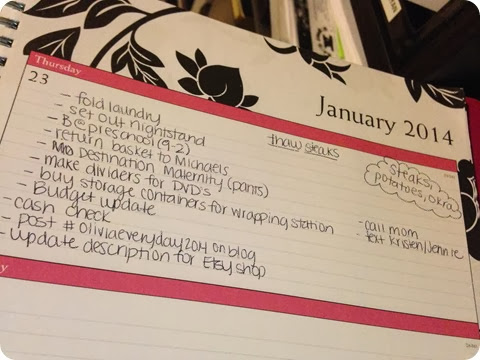 January 2014
Thursday
23
thaw steaks
steaks,
potatoes, okra
- fold laundry
- set out nightstand
- B@preschool (9-2)
- return basket to Michaels
- Destination Maternity (pants)
- make dividers for DVD's
- buy storage containers for wrapping station
- Budget update
- cash check
- post #oliviaeveryday2014 on blog
- update description for Etsy shop
- call mom
- text Kristen/Jennie
y